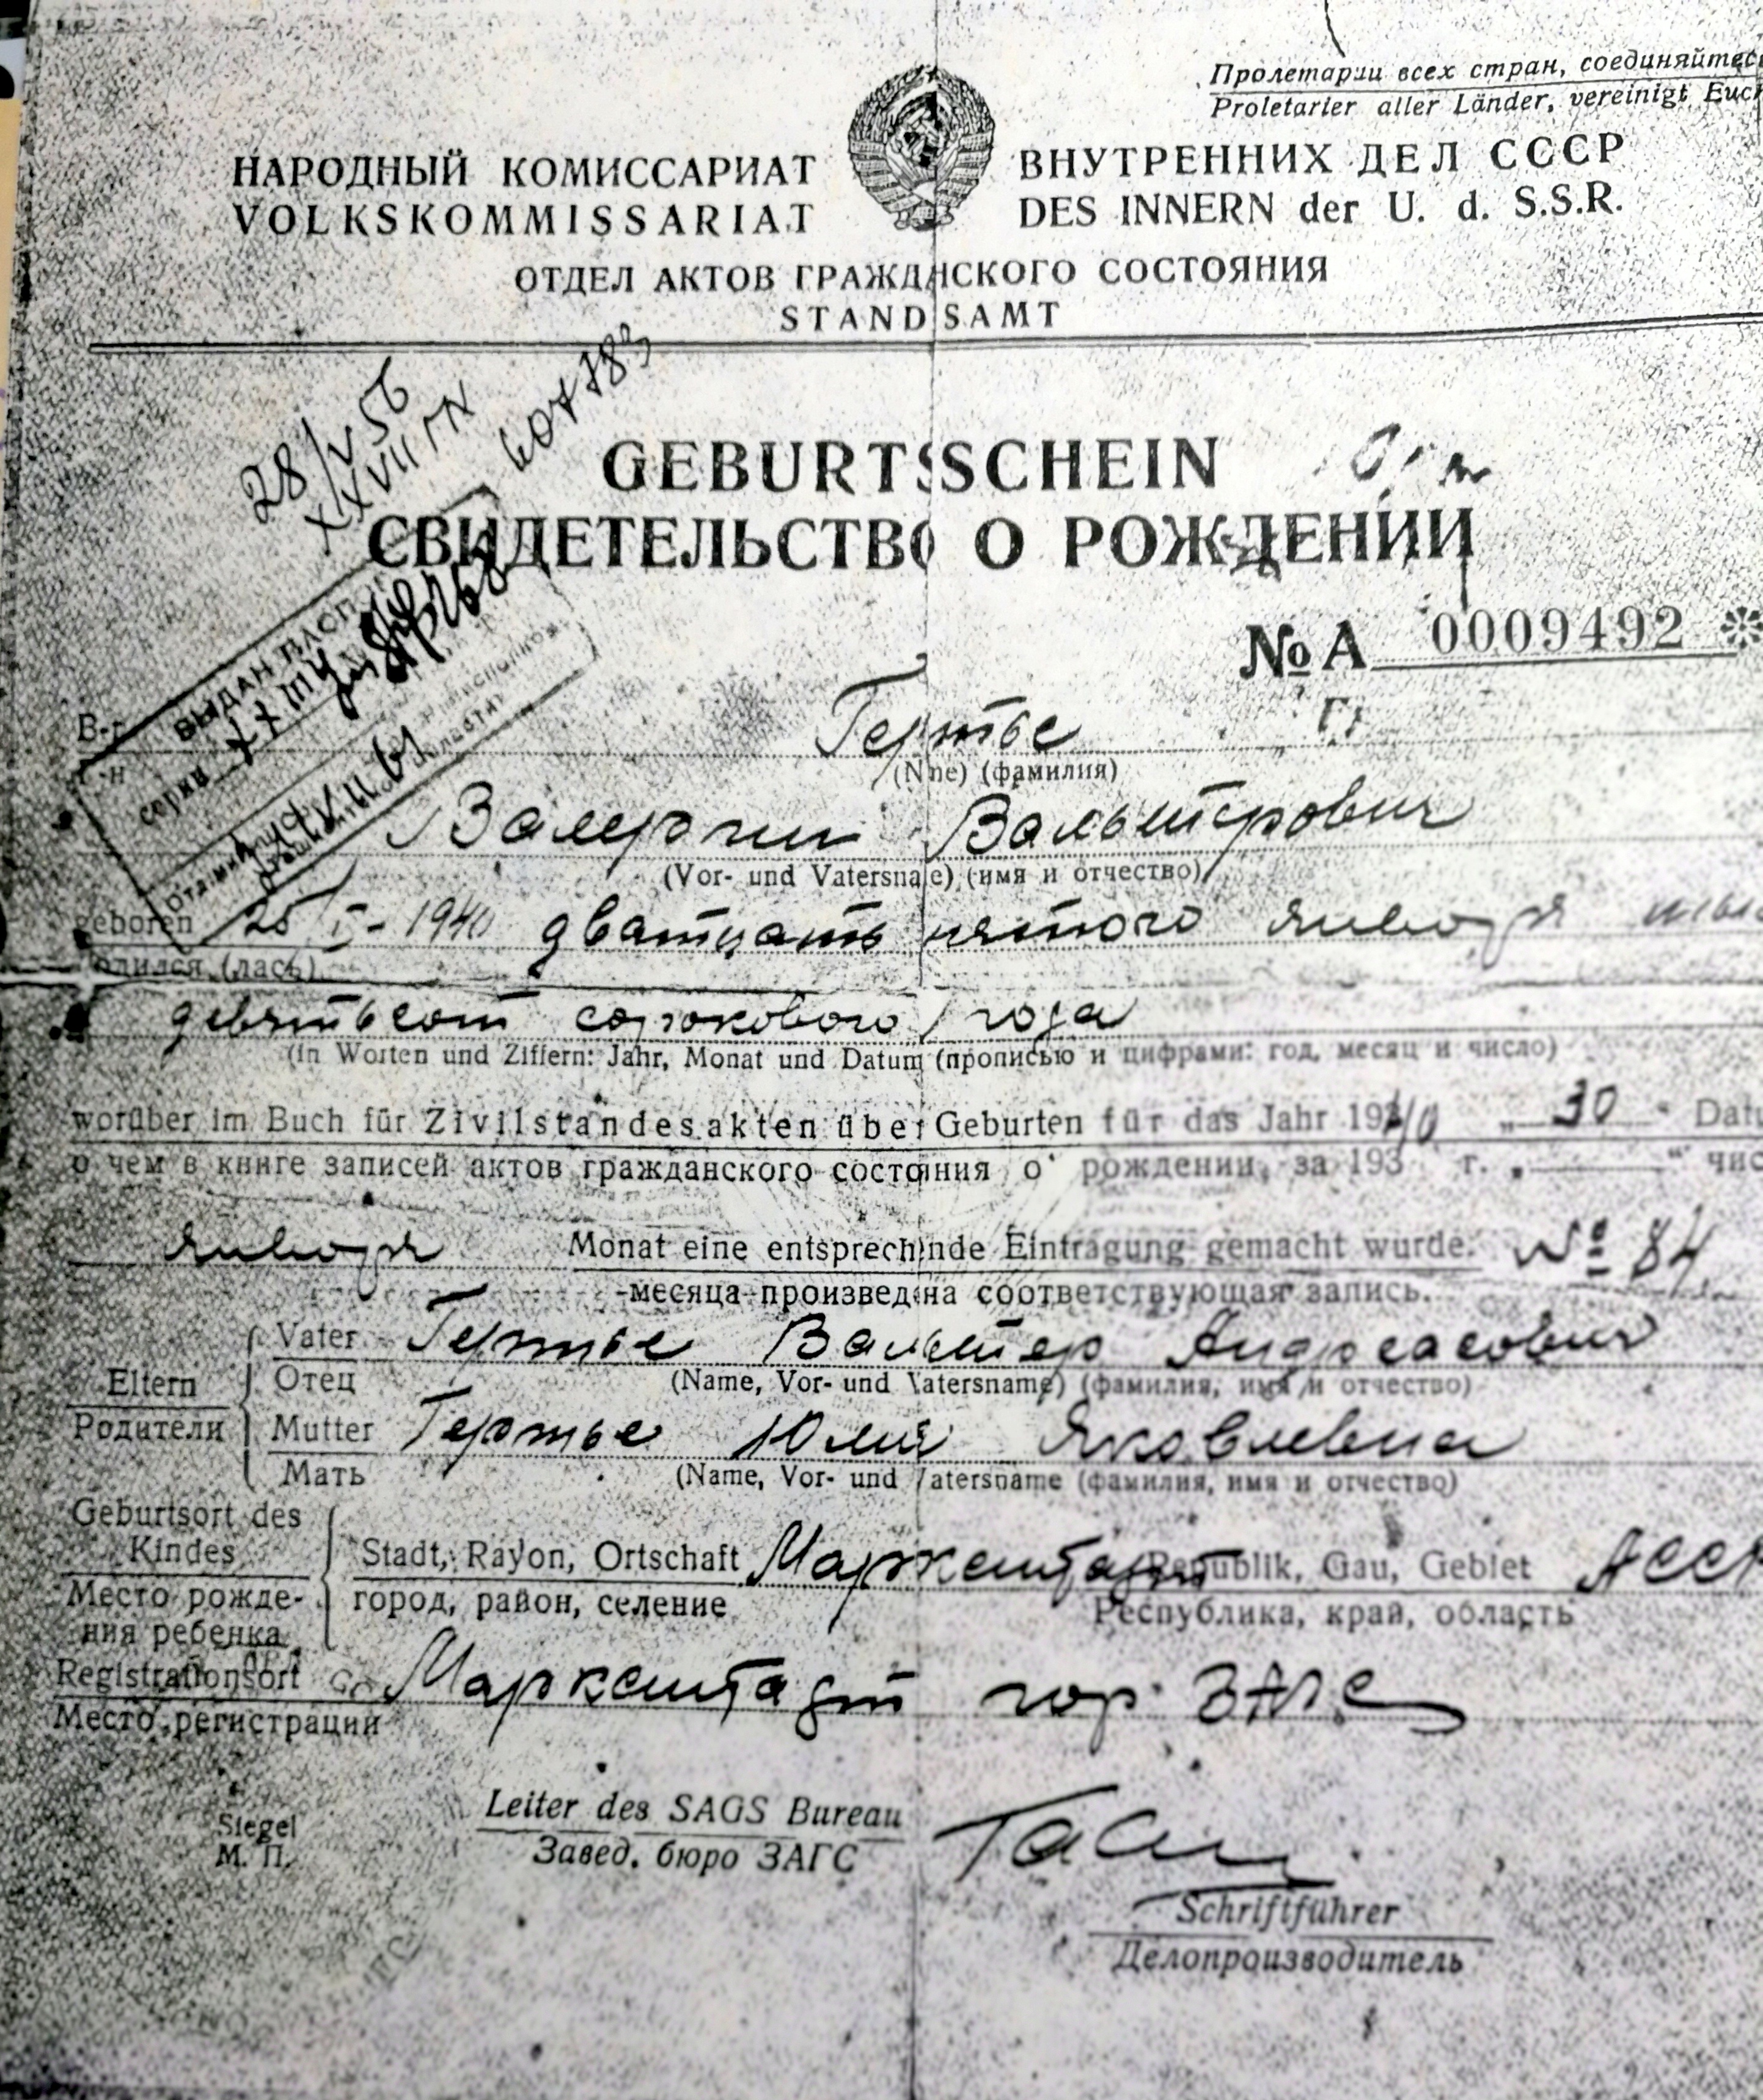 Пролетарии всех стран, соединяйтесь
Proletarier aller Länder, vereinigt Euch
НАРОДНЫЙ КОМИССАРИАТ ВНУТРЕННИХ ДЕЛ СССР
VOLKSKOMMISSARIAT DES INNERN der U. d. S.S.R.
ОТДЕЛ АКТОВ ГРАЖДАНСКОГО СОСТОЯНИЯ
STANDSAMT
28/V 56
607783
GEBURTSSCHEIN
СВИДЕТЕЛЬСТВО О РОЖДЕНИИ
ВЫДАН
серии
№ А 0009492
В-г
Г-н
Гертье
(Nme) (фамилия)
Валерий Вальтерович
(Vor- und Vatersname) (имя и отчество)
geboren 25/I-1940 дватцать пятого января
родился (лась)
девятьсот сорокового года
(in Worten und Ziffern: Jahr, Monat und Datum (прописью и цифрами: год, месяц и число)
worüber im Buch für Zivilstandesakten über Geburten für das Jahr 1940 „ 30 " Dat
о чем в книге записей актов гражданского состояния о рождении, за 193 г. „ " чис
января Monat eine entsprechende Eintragung gemacht wurde. № 84
месяца произведена соответствующая запись.
Eltern
Родители
Vater Гертье Вальтер Андреасович
Отец (Name, Vor- und Vatersname) (фамилия, имя и отчество)
Mutter Гертье Юлия Яковлевна
Мать (Name, Vor- und Vatersname (фамилия, имя и отчество)
Geburtsort des Kindes
Место рождения ребенка
Stadt, Rayon, Ortschaft Марксштадт Republik, Gau, Gebiet АССР
город, район, селение Республика, край, область
Registrationsort Марксштадт гор ЗАГС
Место регистрации
Siegel
М. П.
Leiter des SAGS Bureau
Завед. бюро ЗАГС
Schriftführer
Делопроизводитель